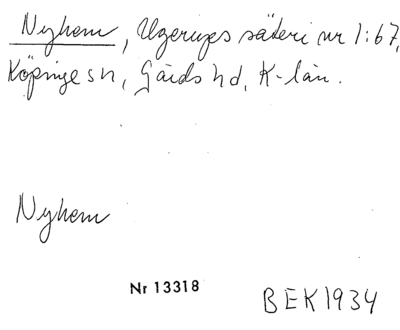 Nyhem, Ugerups säteri nr 1:67,
Köpinge sn, Gärds hd, K-län.
Nyhem
Nr 13318
BEK1934